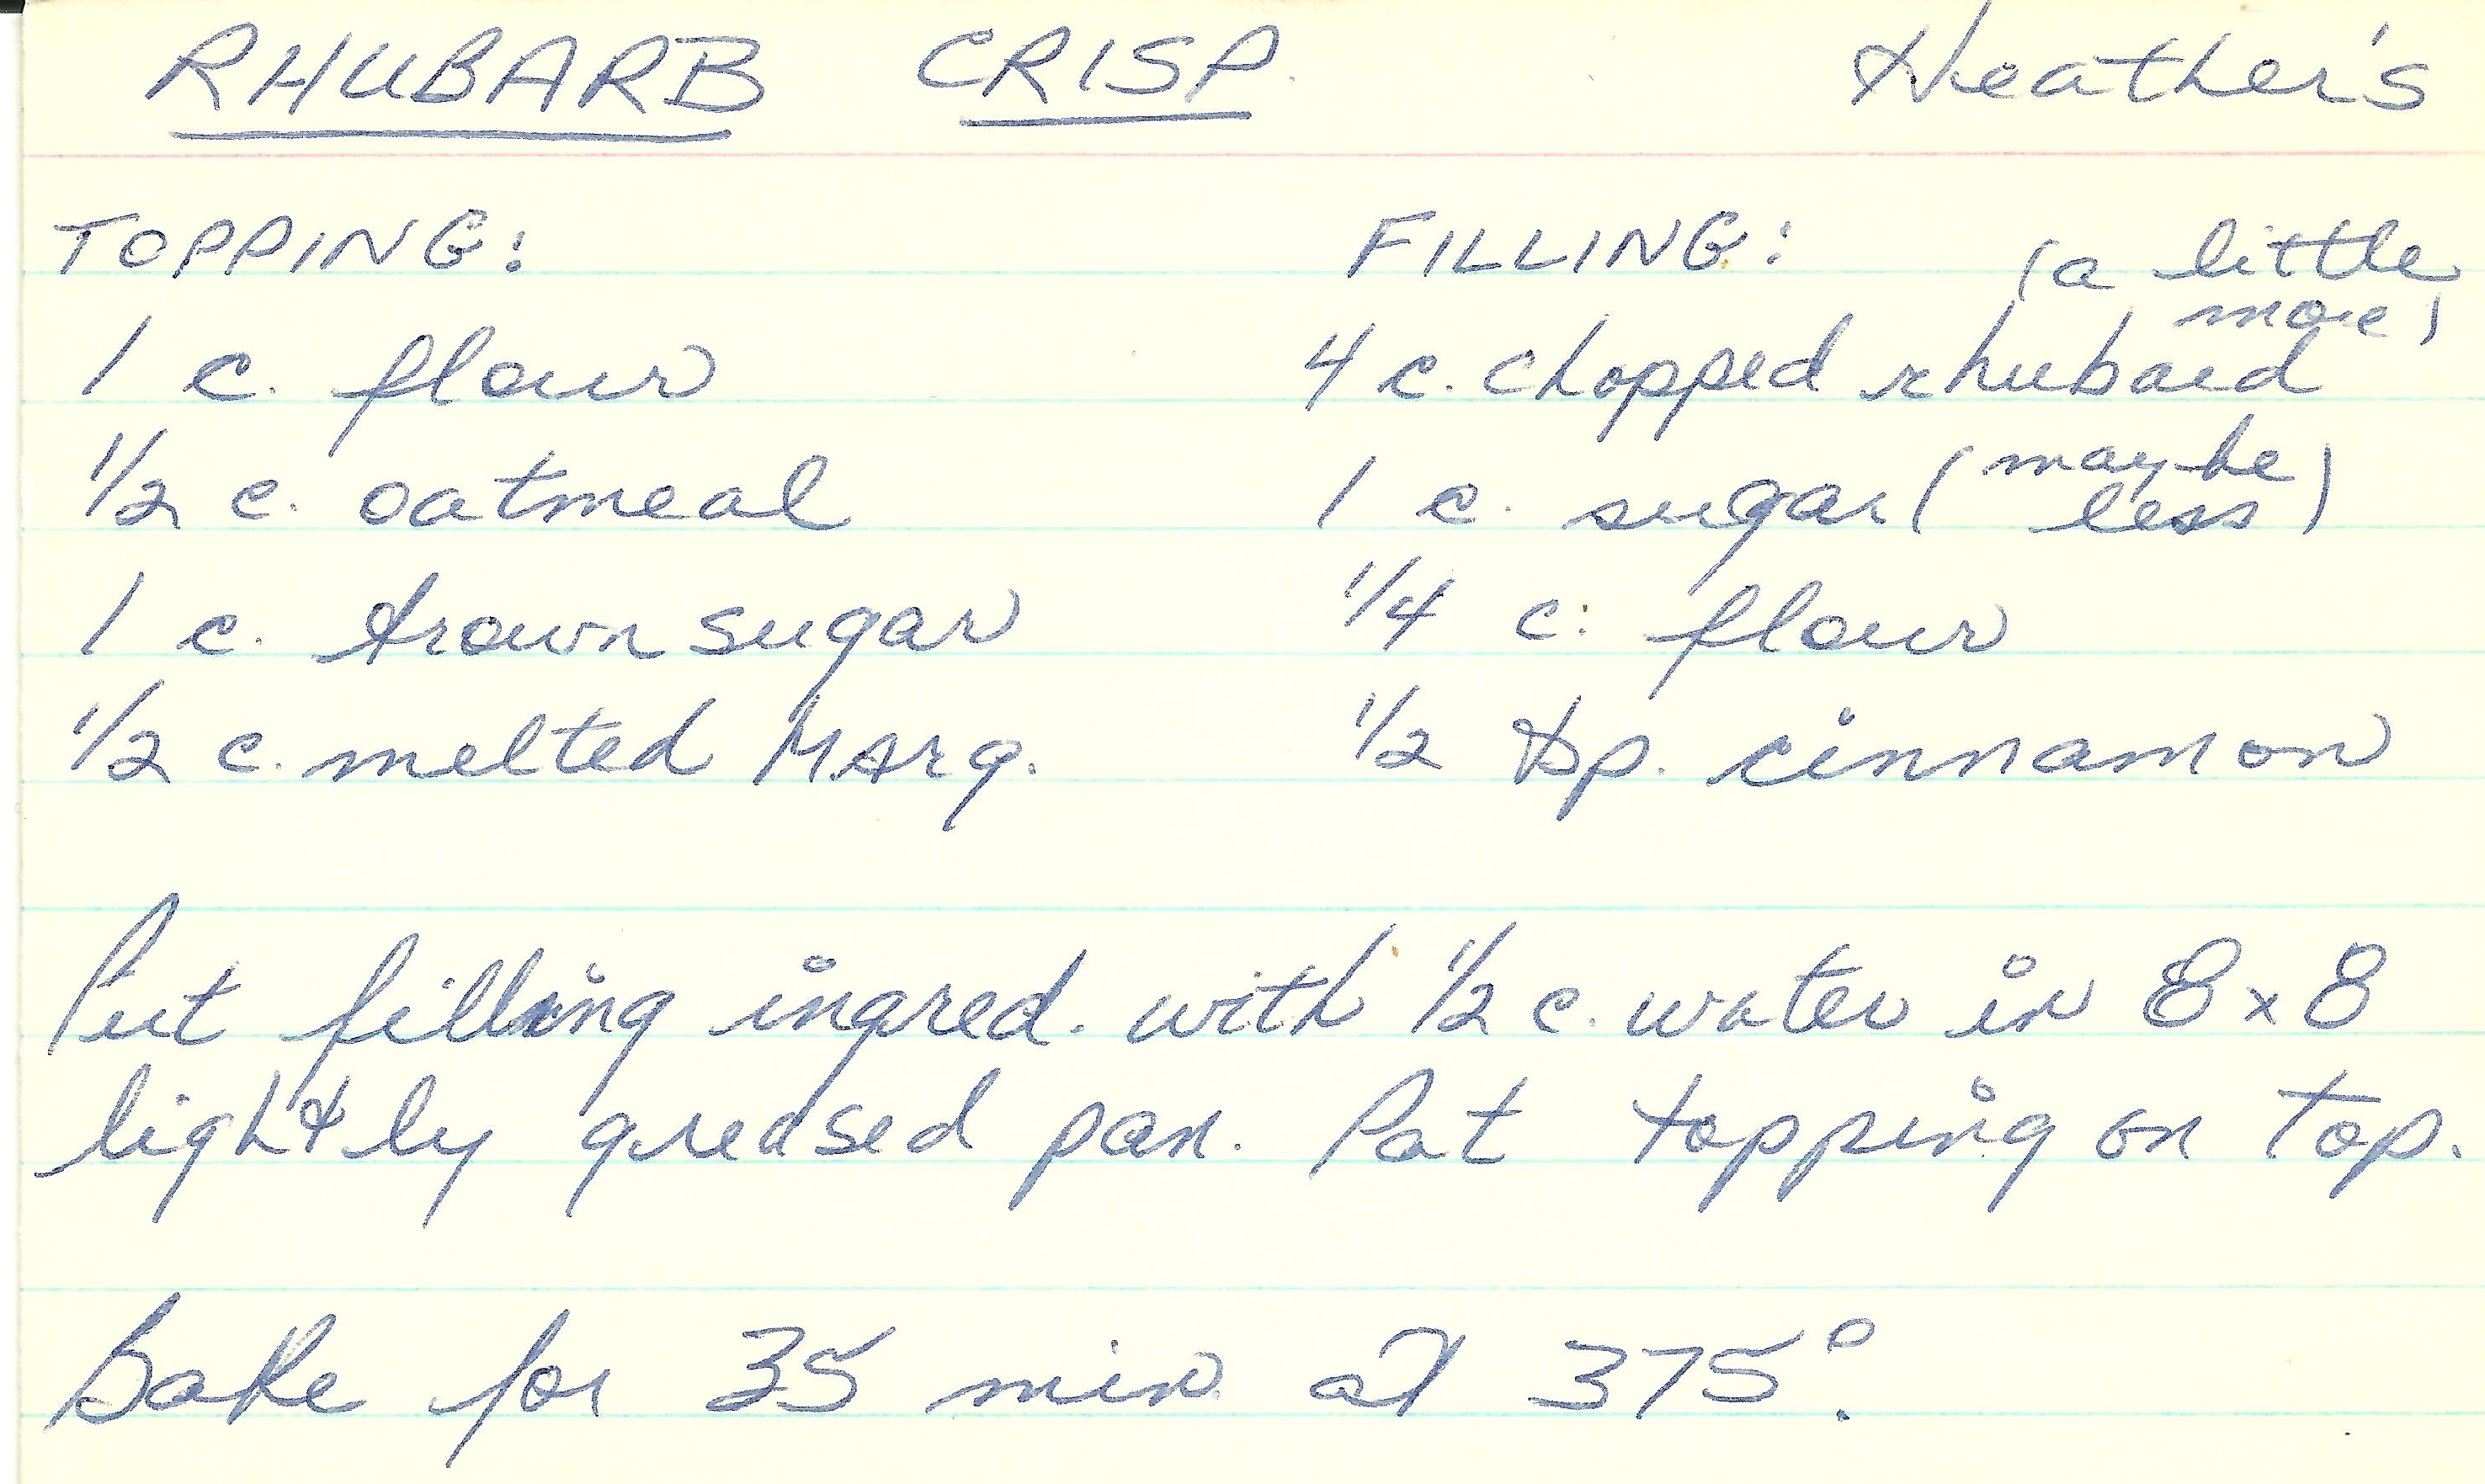 RHUBARB CRISP. Heather's
TOPPING:
1 c. flour
1/2 c. oatmeal
1 c. brown sugar
1/2 c. melted Marg.
FILLING:
(a little
more)
4 c. chopped rhubard
1 c. sugar (maybe
less)
1/4 c. flour
1/2 tsp. cinnamon
Put filling ingred. with 1/2 c. water in 8x8
lightly greased pan. Pat topping on top.
Bake for 35 min at 375°.